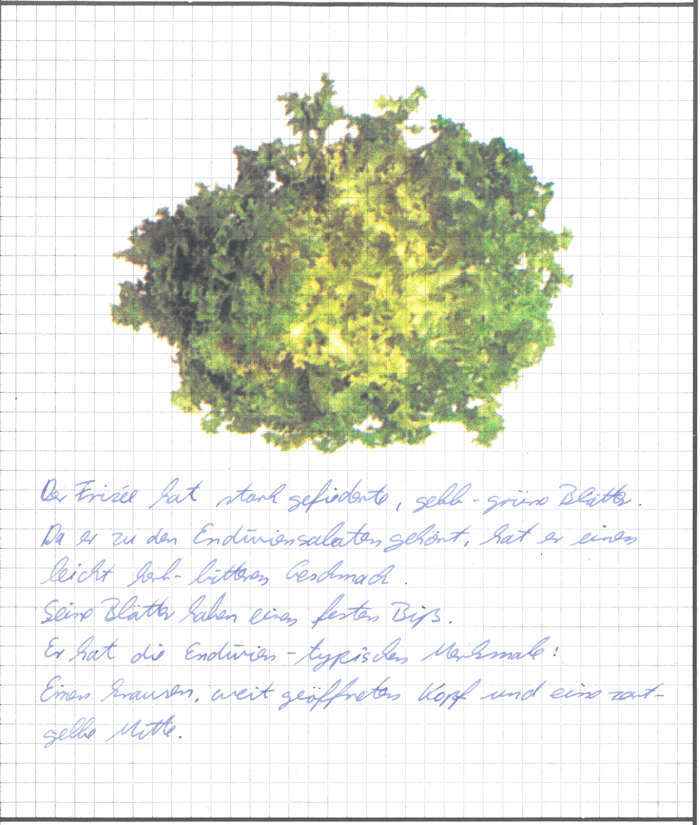 Der Frisée hat stark gefiederte, gelb-grüne Blätter.
Da er zu den Endiviensalaten gehört, hat er einen
leicht herb-bitteren Geschmack.
Seine Blätter haben einen festen Biß.
Er hat die Endivien-typischen Merkmale:
Einen krausen, weit geöffneten Kopf und eine zart-
gelbe Mitte.